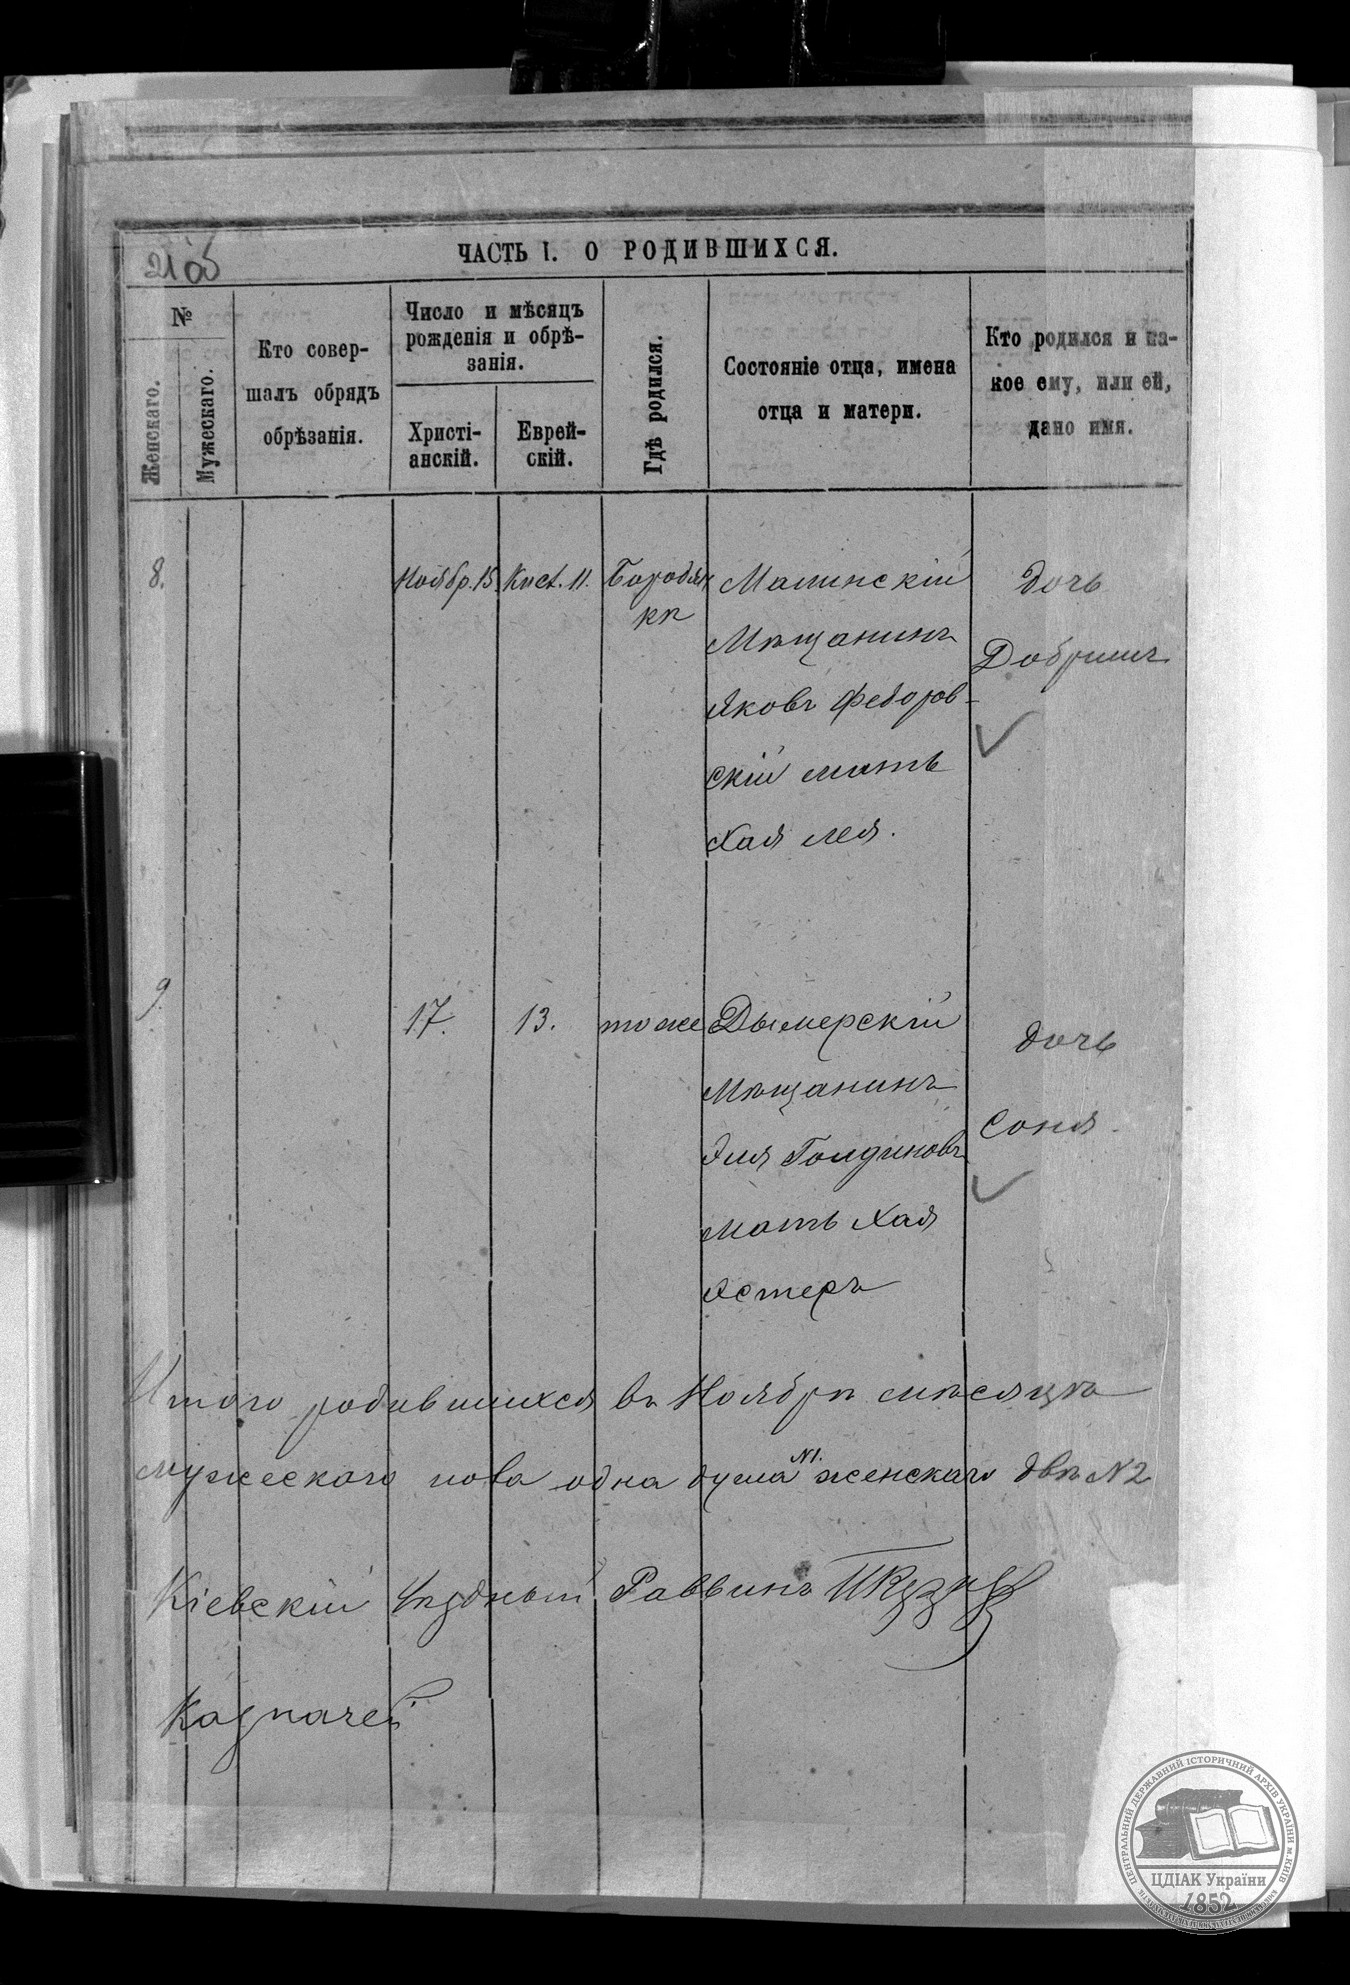 21 об
ЧАСТЬ I. О РОДИВШИХСЯ.
№
Женскаго.
Мужескаго.
Кто совер-
шалъ обрядъ
обрѣзанія.
Число и мѣсяцъ
рожденія и обрѣ-
занія.
Христі-
анскій.
Еврей-
скій.
Гдѣ родился.
Состояніе отца, имена
отца и матери.
Кто родился и ка-
кое ему, или ей,
дано имя.
8.
Ноябр. 15.
Кисл. 11.
Бородян
кѣ
Малинскій
Мѣщанинъ
Яковъ Федоров-
скій мать
Хая Лея.
дочь
Добришъ
9.
17.
13.
тоже
Дымерскій
Мѣщанинъ
Эля Голдиновъ
мать Хая
Эстеръ
дочь
Соня.
Итого родившихся въ Ноябрѣ мѣсяцѣ
мужескаго пола одна душа №1. женскаго двѣ №2
Кіевскій Уѣздный Раввинъ
Казначей
ЦЕНТРАЛЬНИЙ ДЕРЖАВНИЙ ІСТОРИЧНИЙ АРХІВ УКРАЇНИ м. КИЇВ
ЦДІАК України
1852